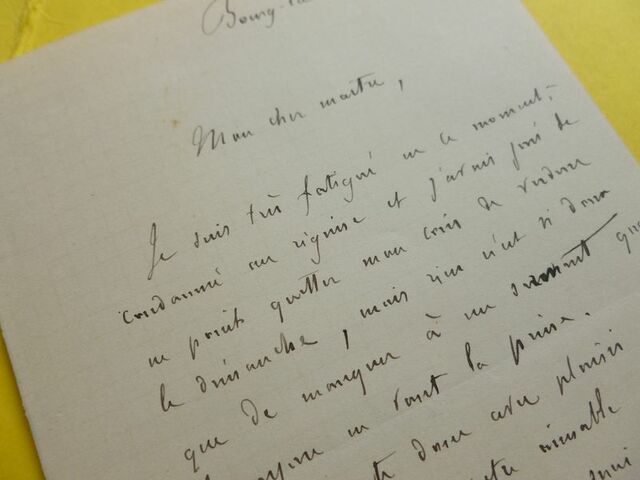 Bourg-la
Mon cher maître,
Je suis très fatigué en ce moment,
condamné au régime et j'avais juré de
ne point quitter mon coin de verdure
le dimanche, mais rien n'est si doux
que de manquer à un serment quand
en vaut la peine.
donc avec plaisir
aimable